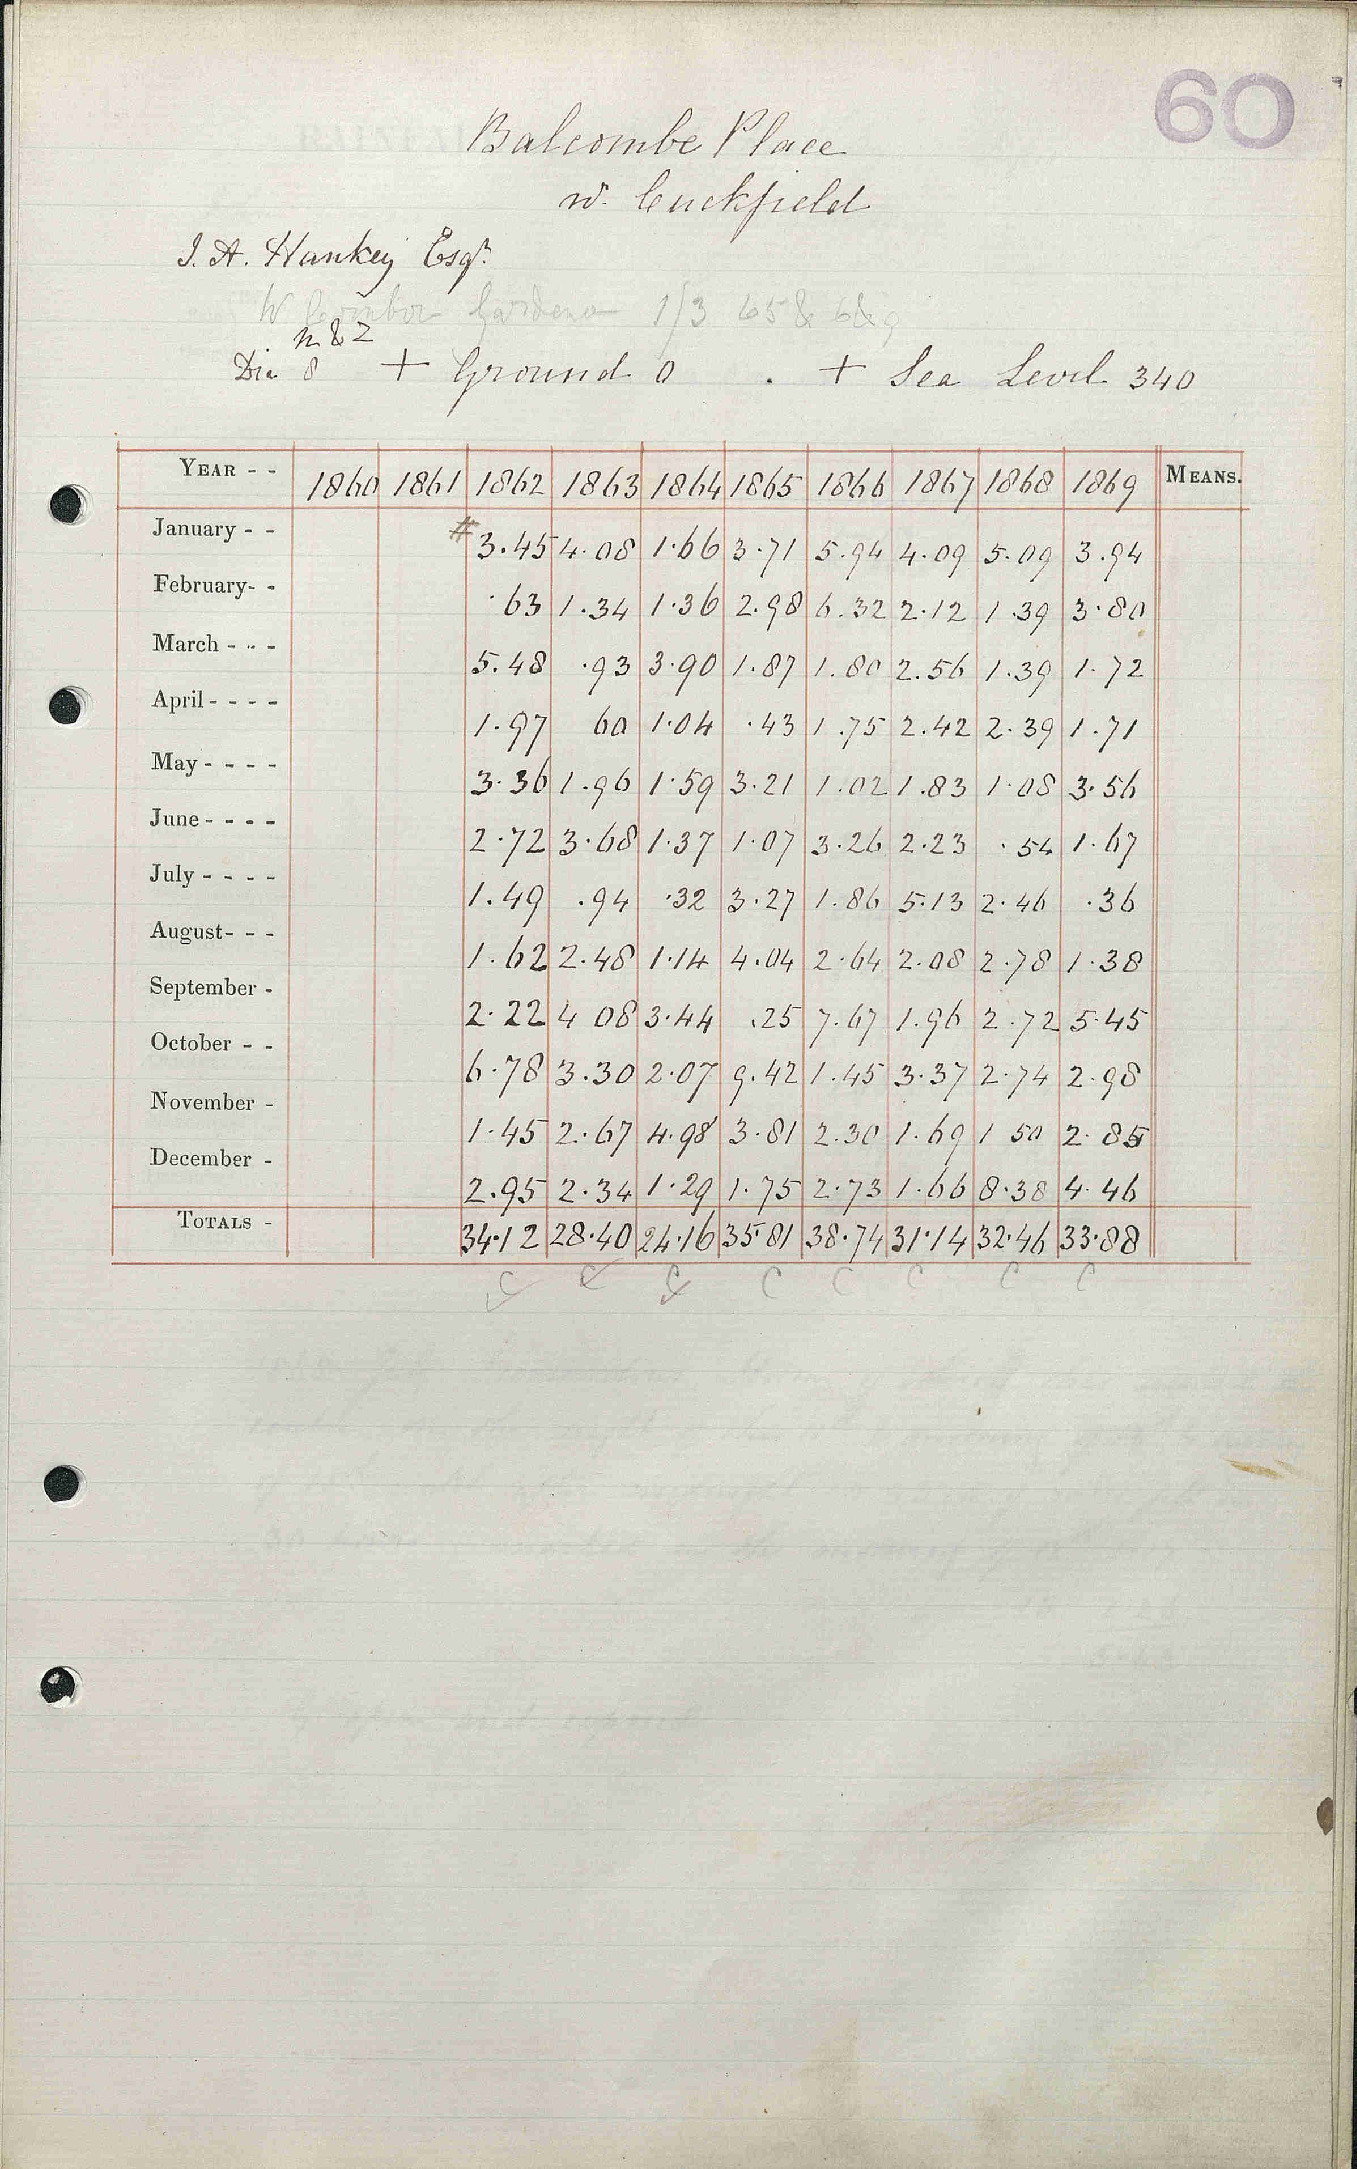 60
Balcombe Place
nr. Cuckfield
J. A. Hankey Esqr.
Gardens 1/3 65 &
m & Z
Dia 8 + Ground 0 . + Sea Level 340
YEAR - - 1860 1861 1862 1863 1864 1865 1866 1867 1868 1869 MEANS.
January - - # 3.45 4.08 1.66 3.71 5.94 4.09 5.09 3.94
February- - .63 1.34 1.36 2.98 6.32 2.12 1.39 3.80
March - - - 5.48 .93 3.90 1.87 1.80 2.56 1.39 1.72
April - - - - 1.97 60 1.04 .43 1.75 2.42 2.39 1.71
May - - - - 3.36 1.96 1.59 3.21 1.02 1.83 1.08 3.56
June - - - - 2.72 3.68 1.37 1.07 3.26 2.23 .54 1.67
July - - - - 1.49 .94 .32 3.27 1.86 5.13 2.46 .36
August- - - 1.62 2.48 1.14 4.04 2.64 2.08 2.78 1.38
September - 2.22 4 08 3.44 .25 7.67 1.96 2.72 5.45
October - - 6.78 3.30 2.07 9.42 1.45 3.37 2.74 2.98
November - 1.45 2.67 4.98 3.81 2.30 1.69 1 50 2.85
December - 2.95 2.34 1.29 1.75 2.73 1.66 8.38 4.46
TOTALS - 34.12 28.40 24.16 35.81 38.74 31.14 32.46 33.88
C C C C C C C C